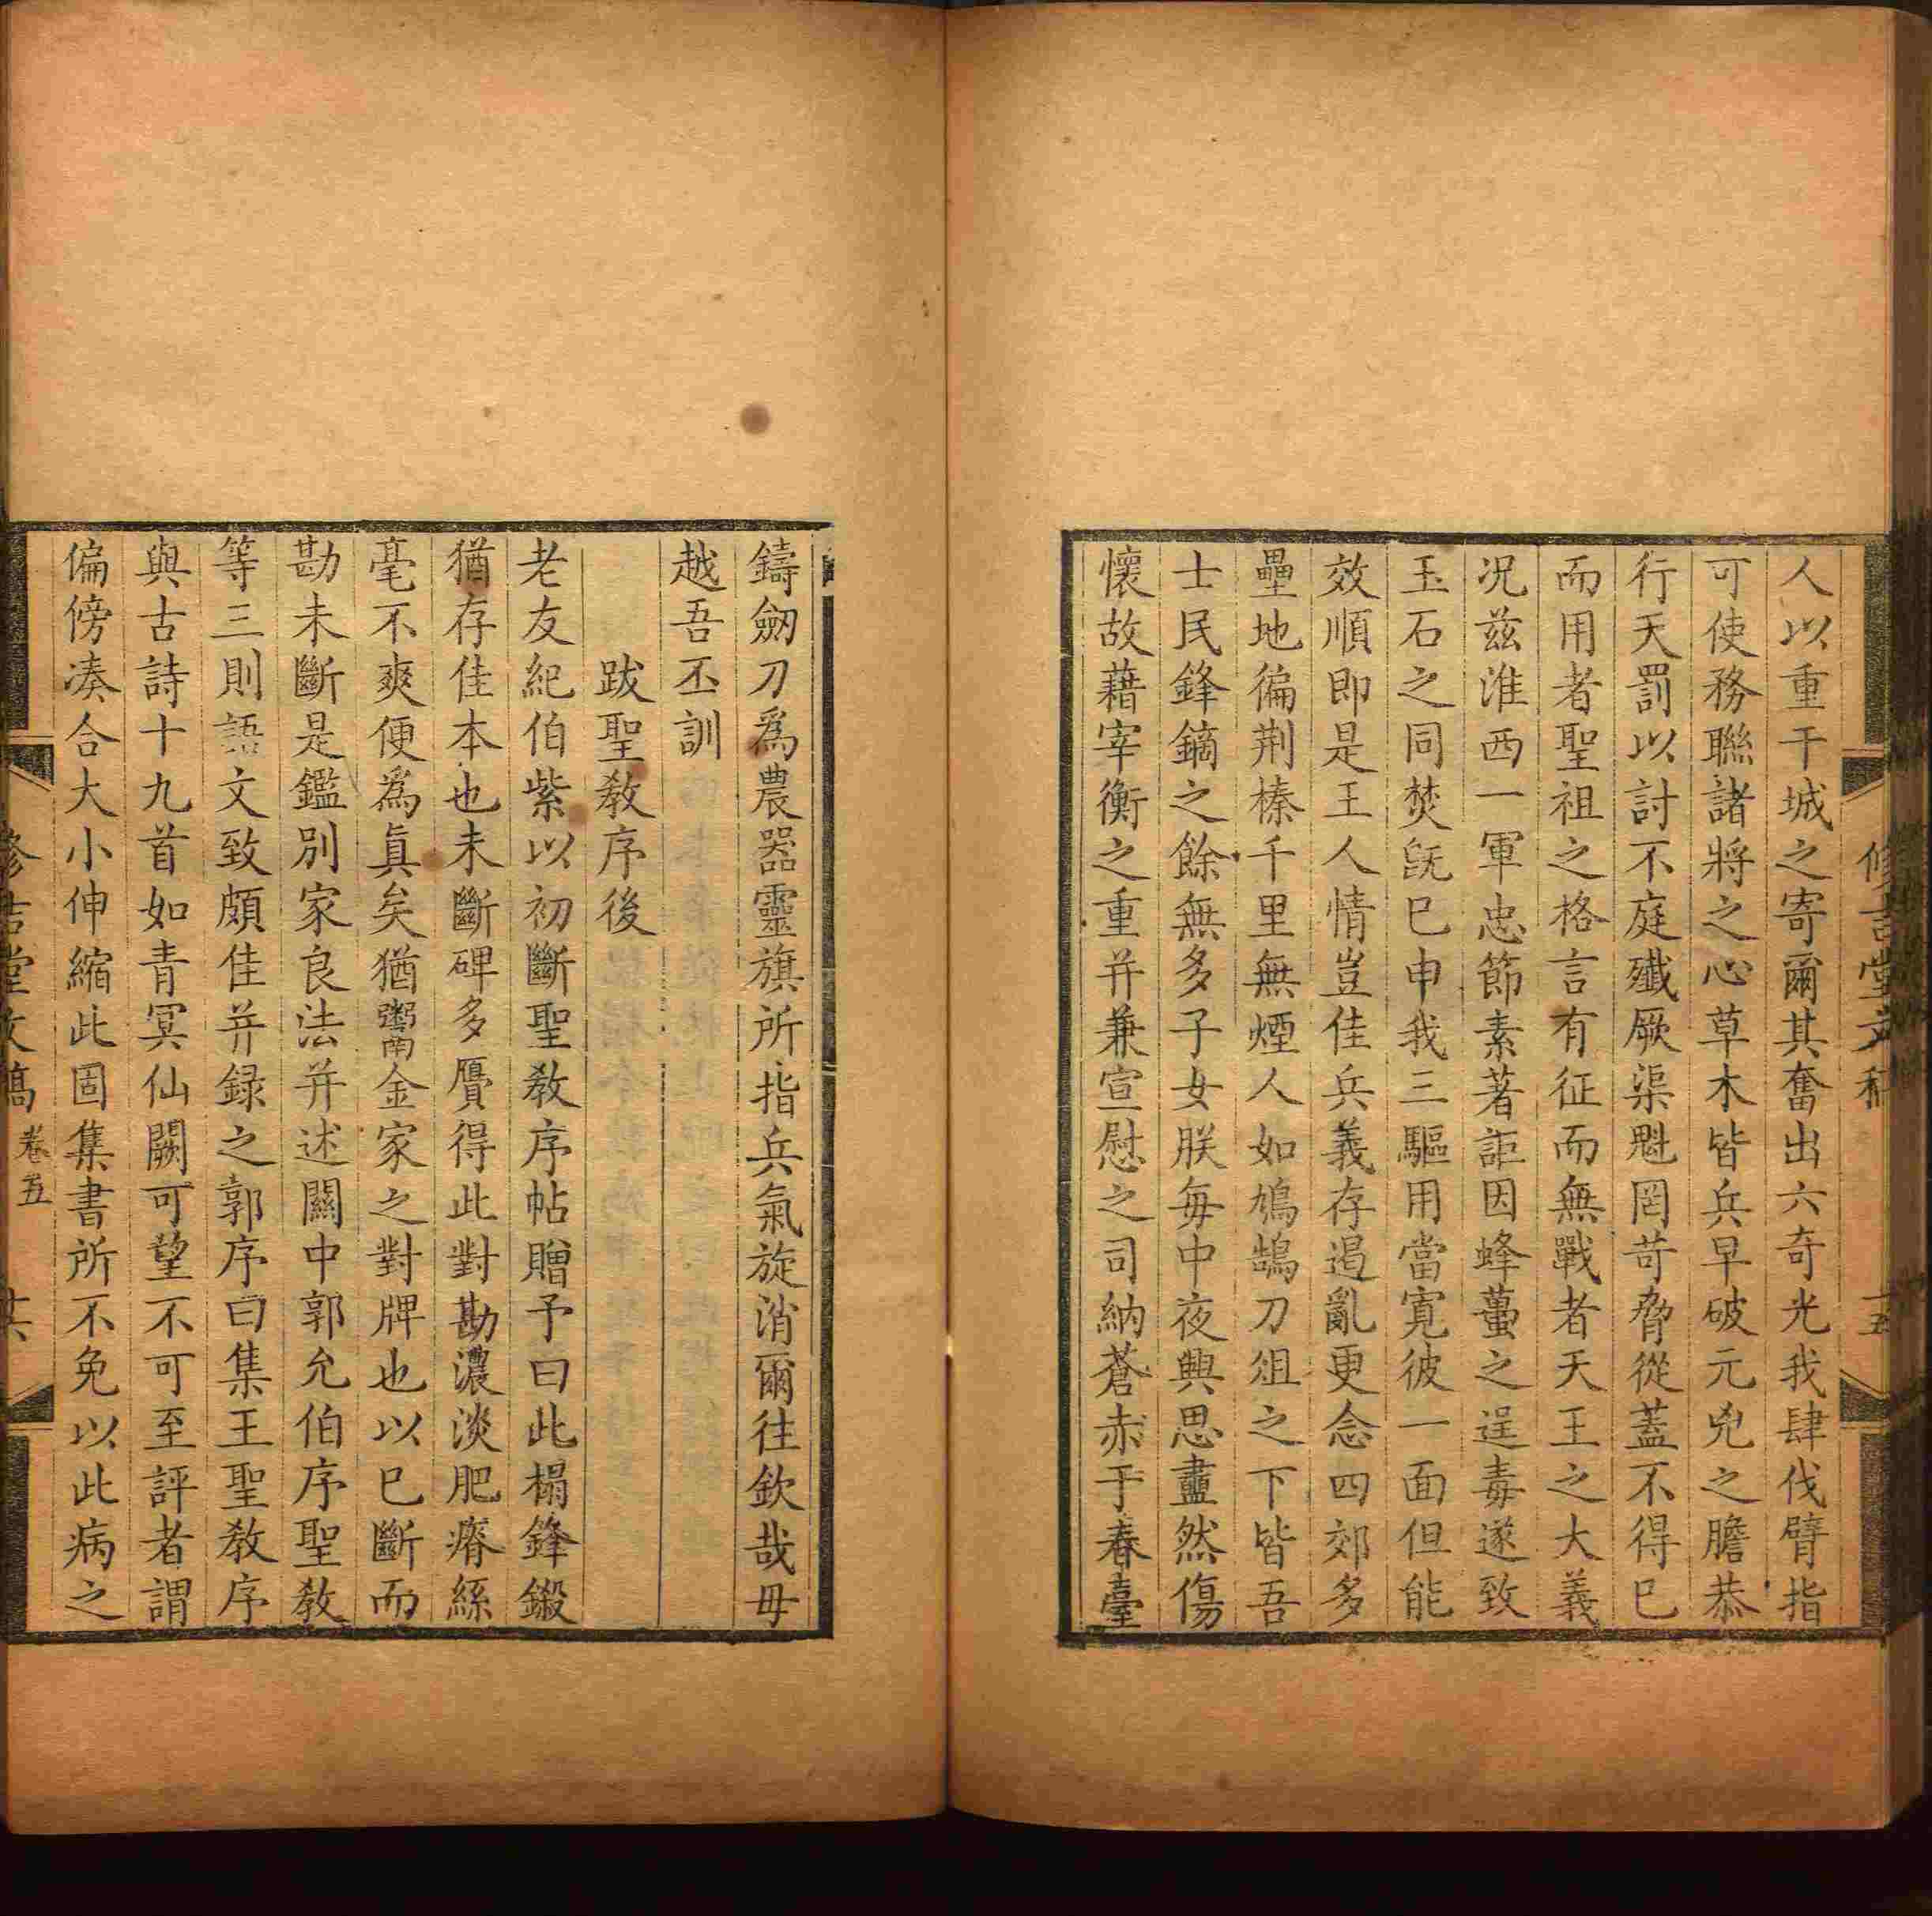 人以重干城之寄爾其奮出六奇光我肆伐臂指
可使務聯諸將之心草木皆兵早破元兇之膽恭
行天罰以討不庭殲厥渠魁罔苛脅從蓋不得已
而用者聖祖之格言有征而無戰者天王之大義
况兹淮西一軍忠節素著詎因蜂蠆之逞毒遂致
玉石之同焚旣巳申我三驅用當寬彼一面但能
效順即是王人情豈佳兵義存遏亂更念四郊多
壘地徧荆榛千里無煙人如鳩鵠刀俎之下皆吾
士民鋒鏑之餘無多子女朕每中夜興思衋然傷
懷故藉宰衡之重并兼宣慰之司納蒼赤于春臺
鑄劒刀爲農器靈旗所指兵氣旋消爾往欽哉毋
越吾丕訓
跋聖敎序後
老友紀伯紫以初斷聖敎序帖贈予曰此榻鋒鎩
猶存佳本也未斷碑多贋得此對勘濃淡肥瘠絲
毫不爽便爲眞矣猶鬻南金家之對牌也以巳斷而
勘未斷是鑑別家良法并述關中郭允伯序聖敎
等三則語文致頗佳并録之郭序曰集王聖敎序
與古詩十九首如青冥仙闕可望不可至評者謂
偏傍凑合大小伸縮此固集書所不免以此病之
修吉堂文稿 卷五 共